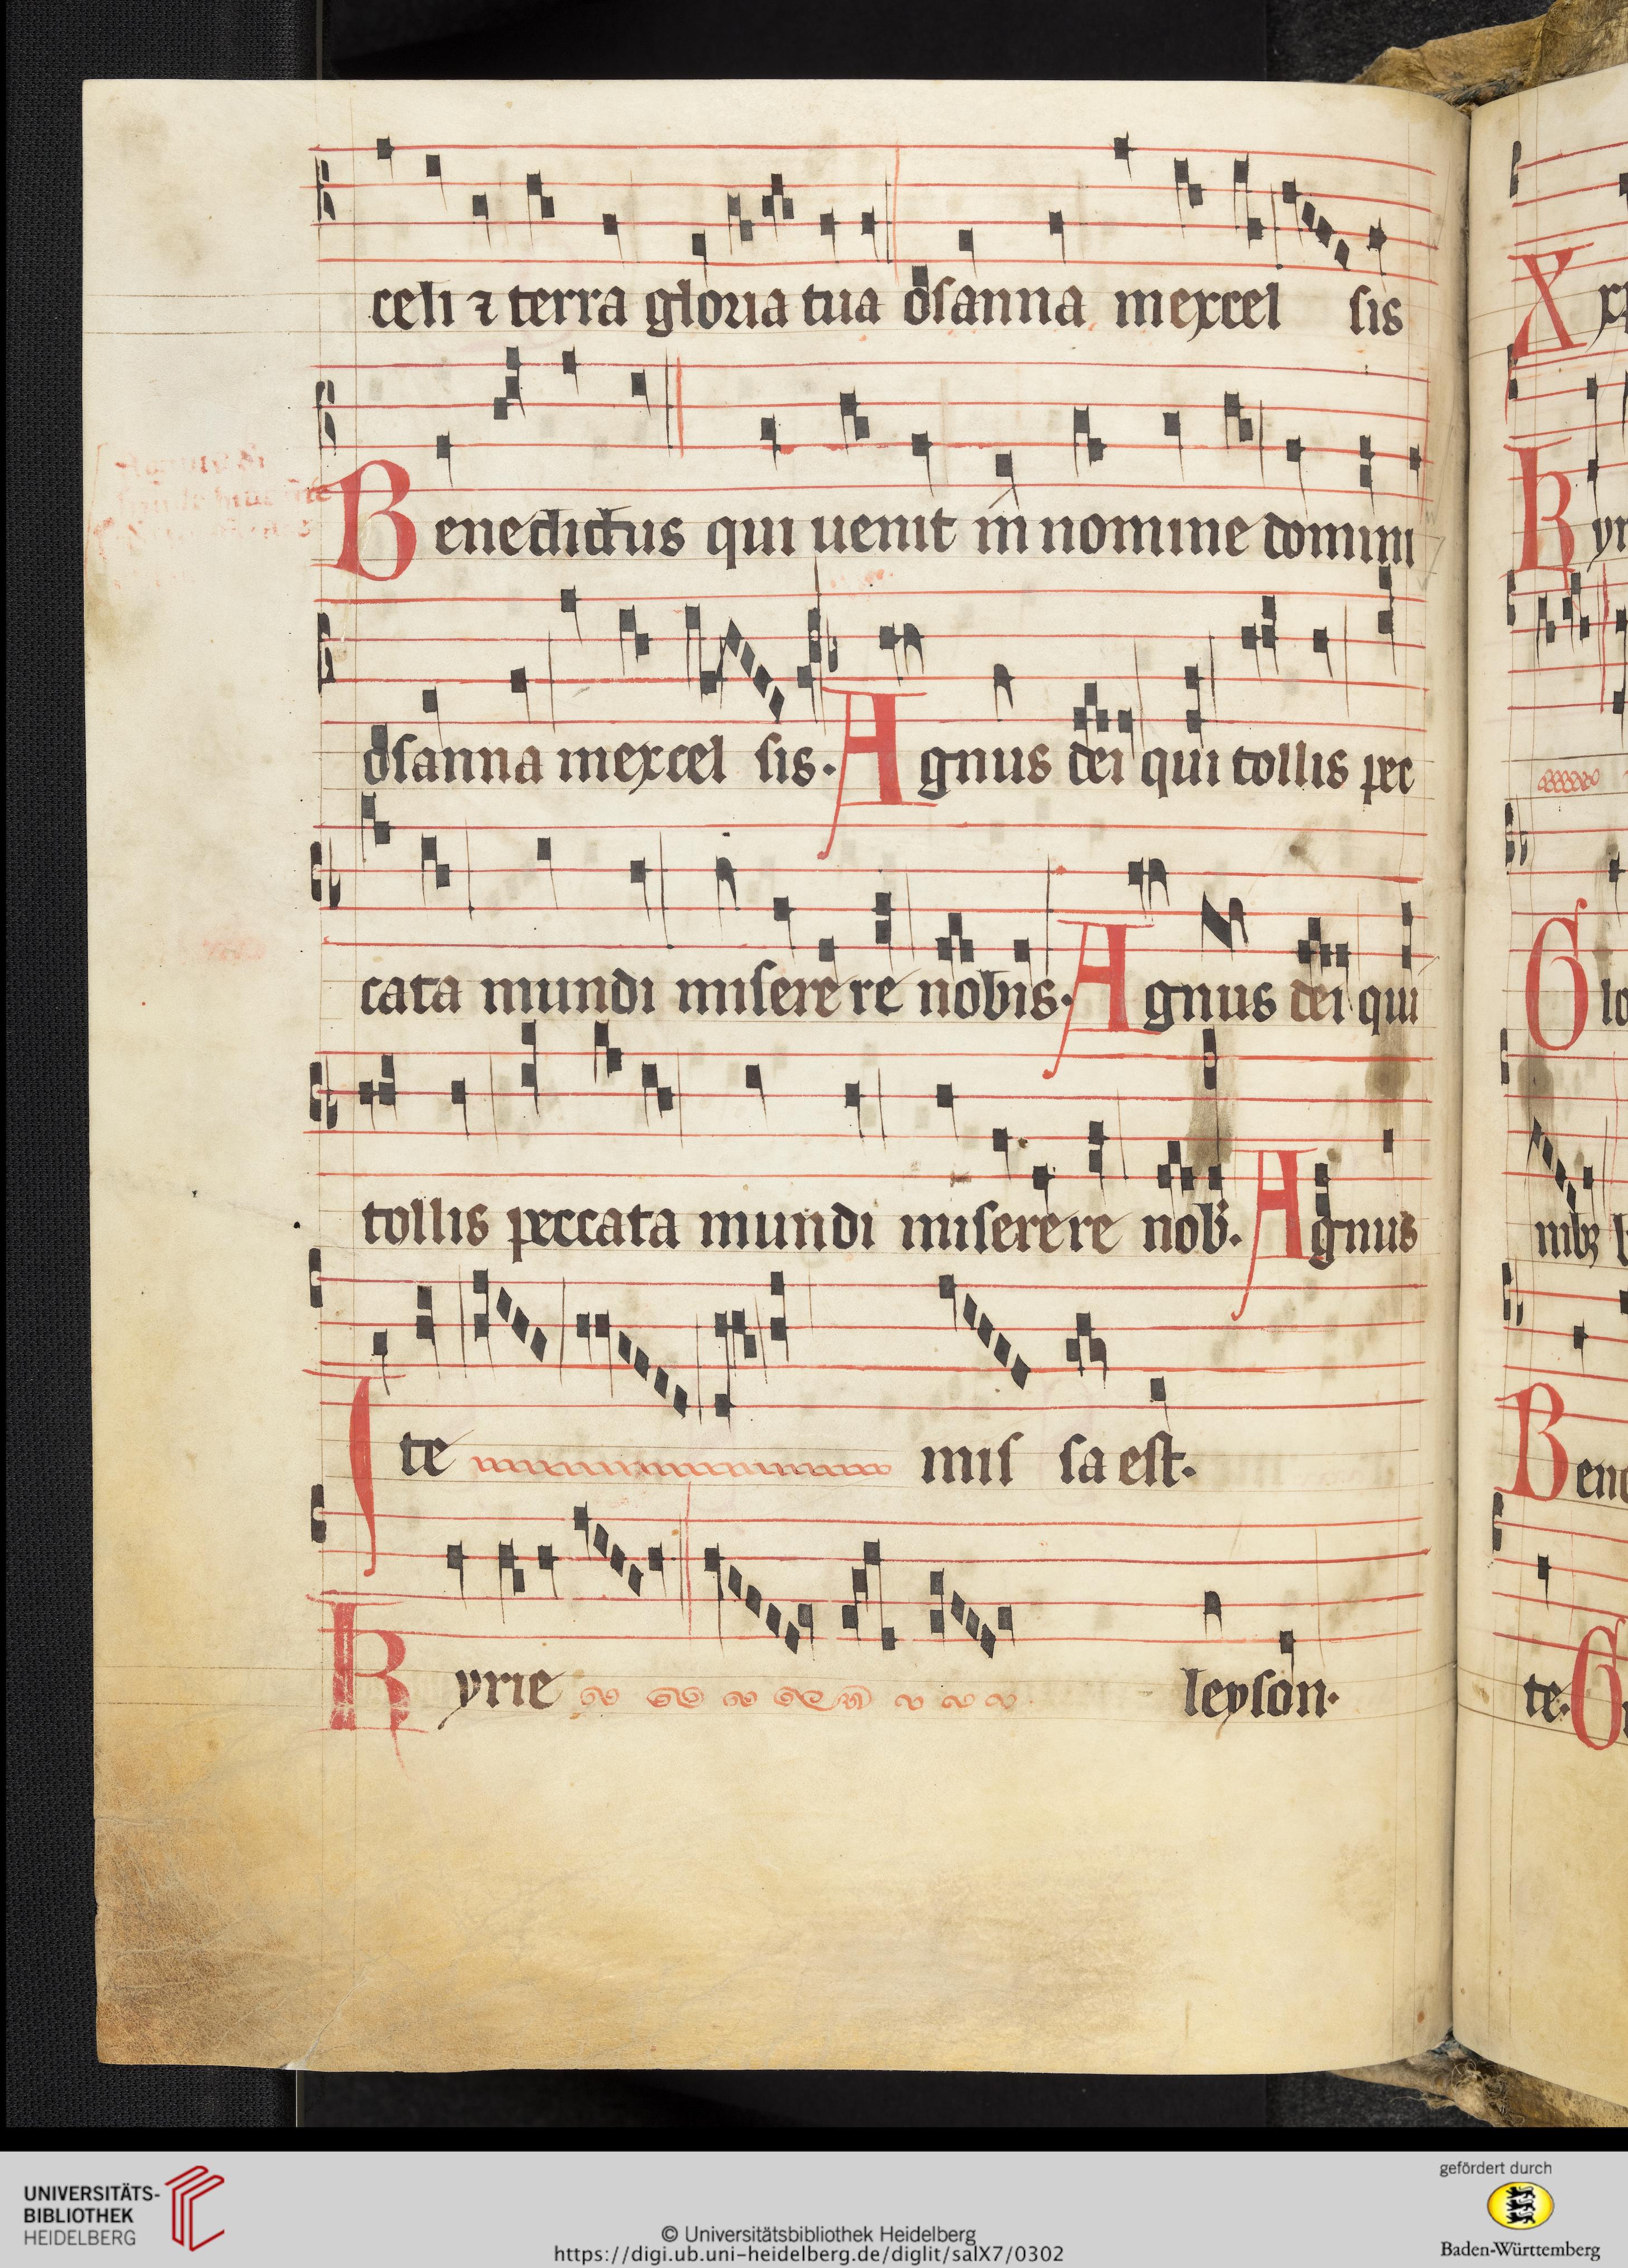 celi ⁊ terra gloria tua osanna inexcel sis
Benedictus qui uenit in nomine domini
osanna inexcel sis. Agnus dei qui tollis pec
cata mundi miserere nobis. Agnus dei qui
tollis peccata mundi miserere nob. Agnus
Ite mis sa est.
Kyrie leyson.
X
Kyr
Glo
Bene
te. G
UNIVERSITÄTS-
BIBLIOTHEK
HEIDELBERG
© Universitätsbibliothek Heidelberg
https://digi.ub.uni-heidelberg.de/diglit/salX7/0302
gefördert durch
Baden-Württemberg